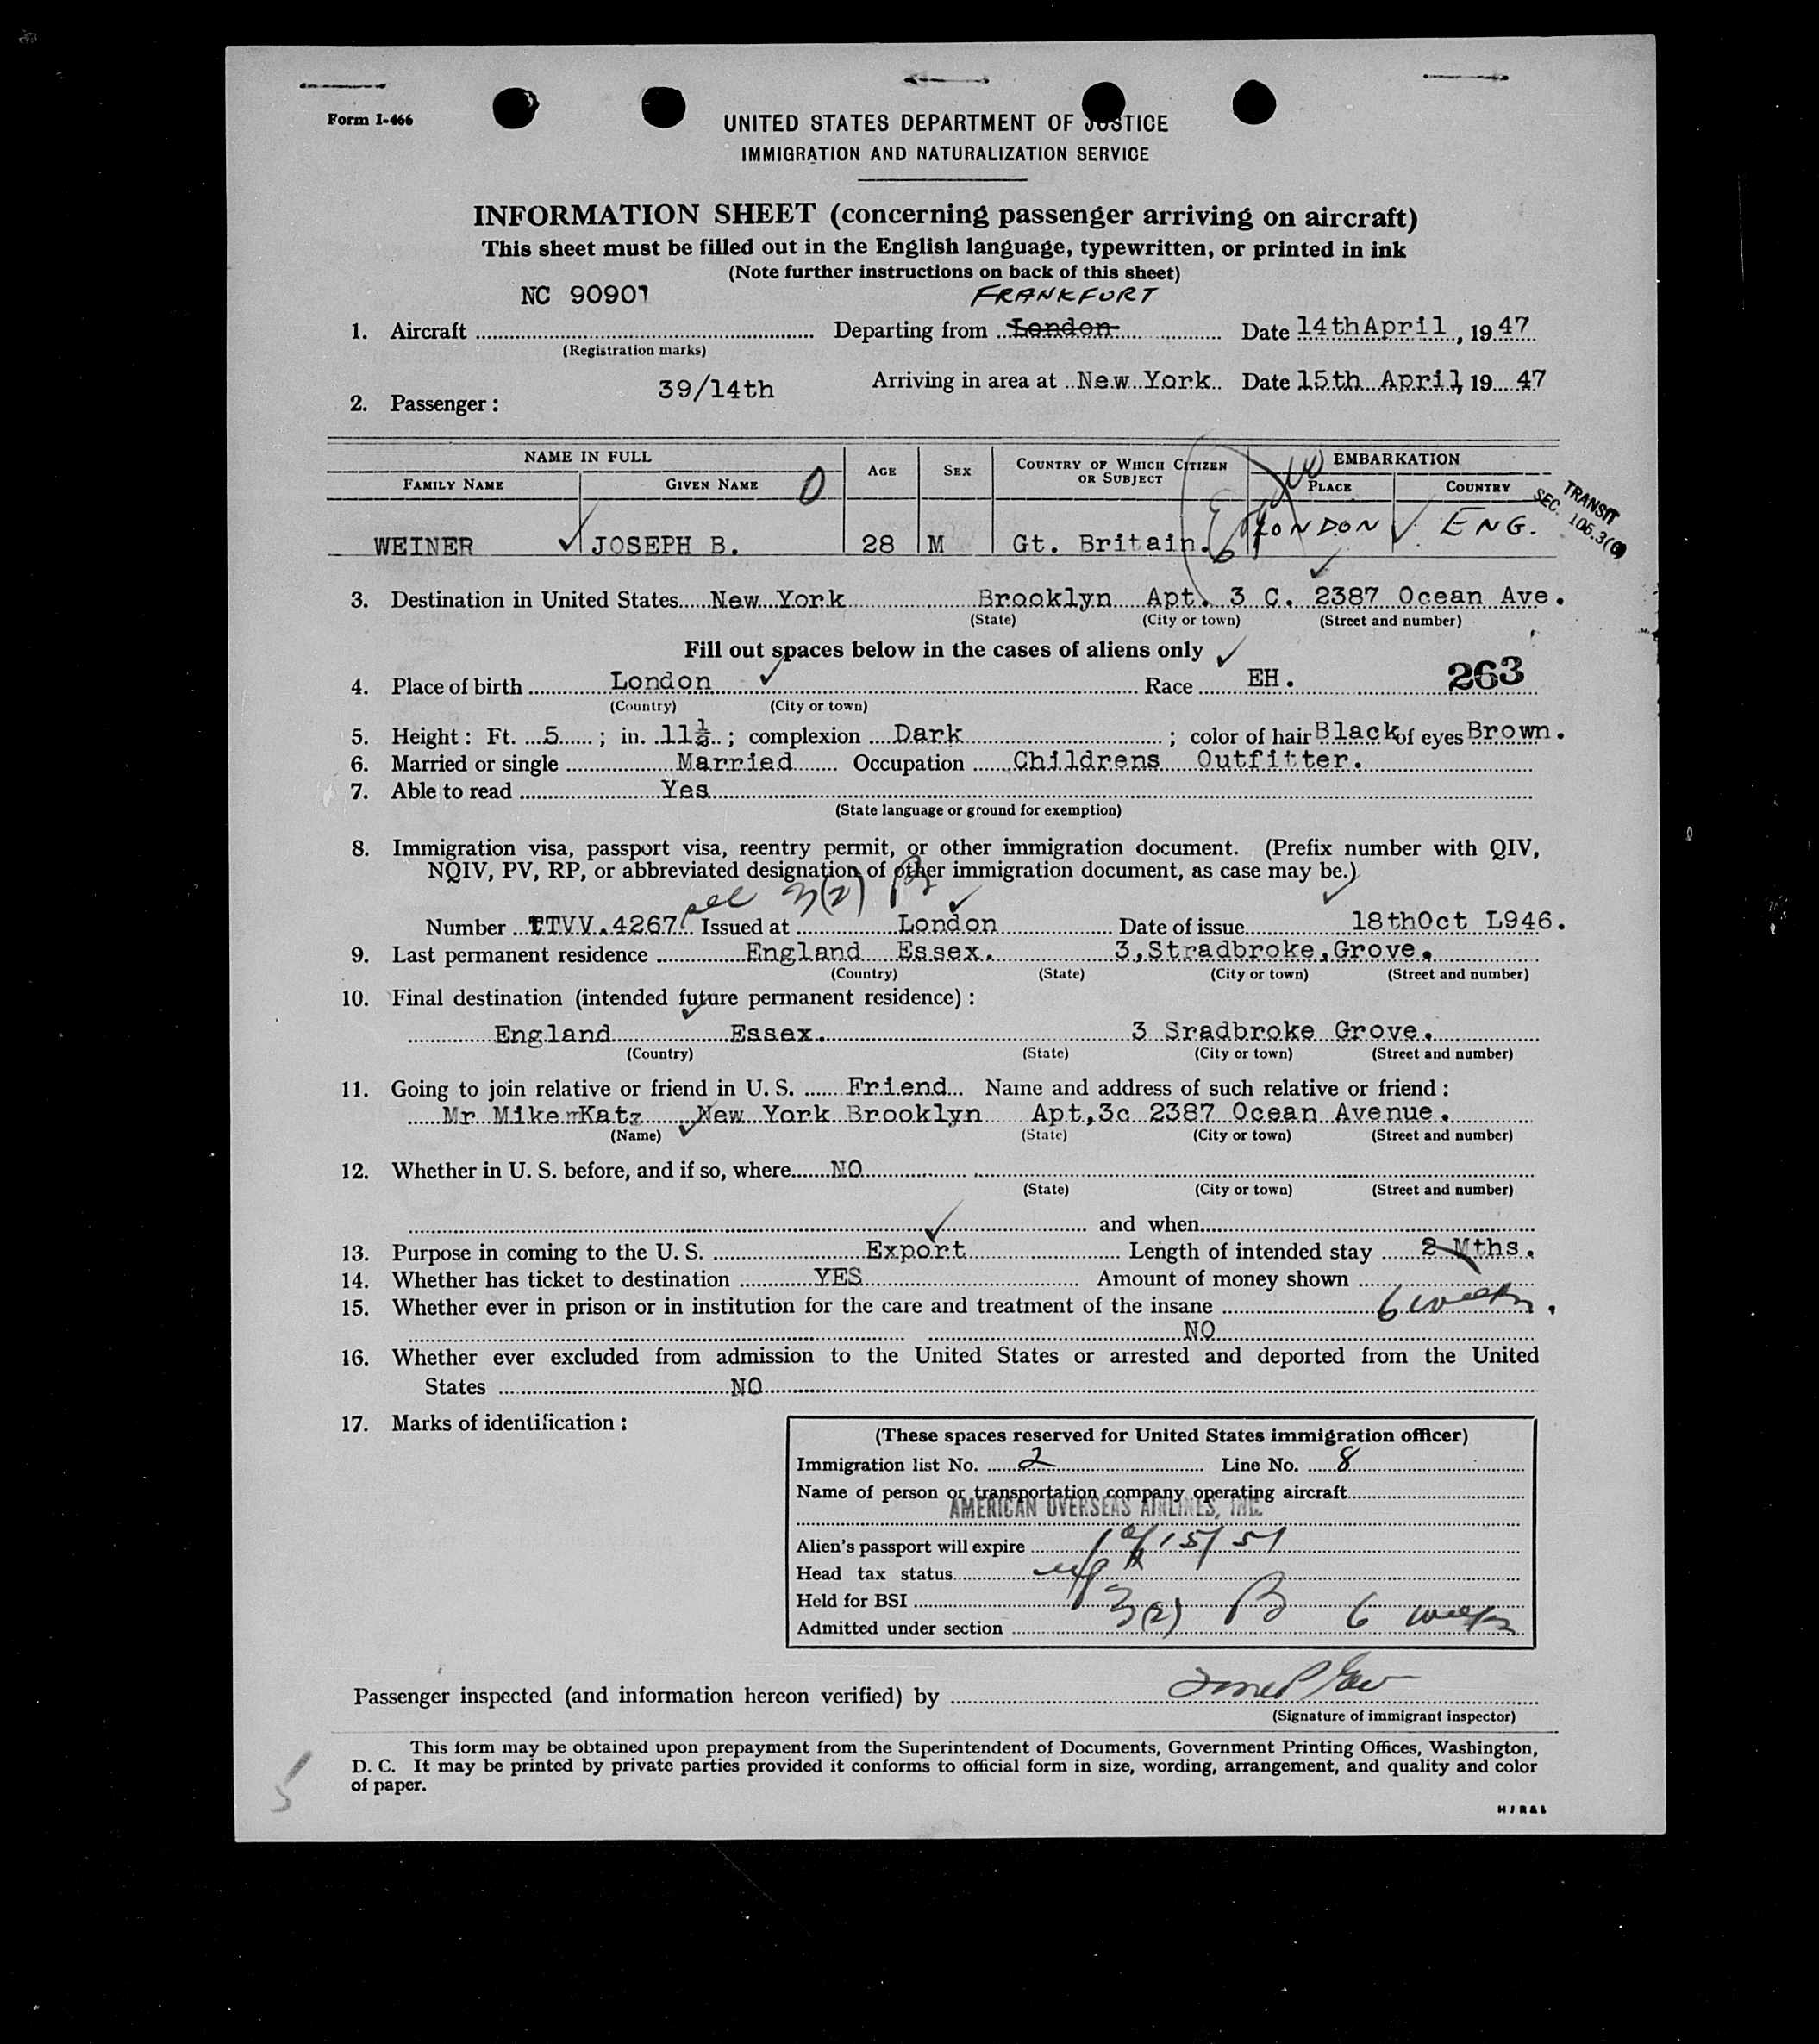 Form I-466
UNITED STATES DEPARTMENT OF JUSTICE
IMMIGRATION AND NATURALIZATION SERVICE
INFORMATION SHEET (concerning passenger arriving on aircraft)
This sheet must be filled out in the English language, typewritten, or printed in ink
(Note further instructions on back of this sheet)
NC 90901 FRANKFURT
1. Aircraft Departing from London Date 14thApril, 1947
(Registration marks)
39/14th Arriving in area at New York Date 15th April, 19 47
2. Passenger:
NAME IN FULL AGE SEX COUNTRY OF WHICH CITIZEN OR SUBJECT EMBARKATION
FAMILY NAME GIVEN NAME 0 PLACE COUNTRY
TRANSIT
SEC. 106.3(6)
WEINER JOSEPH B. 28 M Gt. Britain. LONDON ENG.
3. Destination in United States New York Brooklyn Apt. 3 C. 2387 Ocean Ave.
(State) (City or town) (Street and number)
Fill out spaces below in the cases of aliens only
4. Place of birth London Race EH. 263
(Country) (City or town)
5. Height: Ft. 5; in. 11½; complexion Dark; color of hair Black of eyes Brown.
6. Married or single Married Occupation Childrens Outfitter.
7. Able to read Yes
(State language or ground for exemption)
8. Immigration visa, passport visa, reentry permit, or other immigration document. (Prefix number with QIV,
NQIV, PV, RP, or abbreviated designation of other immigration document, as case may be.)
sec 3(2) B
Number TTVV.4267 Issued at London Date of issue 18thOct L946.
9. Last permanent residence England Essex. 3,Stradbroke,Grove.
(Country) (State) (City or town) (Street and number)
10. Final destination (intended future permanent residence):
England Essex. 3 Sradbroke Grove.
(Country) (State) (City or town) (Street and number)
11. Going to join relative or friend in U. S. Friend Name and address of such relative or friend:
Mr Mike Katz New York Brooklyn Apt,3c 2387 Ocean Avenue.
(Name) (State) (City or town) (Street and number)
12. Whether in U. S. before, and if so, where NO
(State) (City or town) (Street and number)
and when
13. Purpose in coming to the U. S. Export Length of intended stay 2 Mths.
14. Whether has ticket to destination YES Amount of money shown
15. Whether ever in prison or in institution for the care and treatment of the insane 6 weeks.
NO
16. Whether ever excluded from admission to the United States or arrested and deported from the United
States NO
17. Marks of identification:
(These spaces reserved for United States immigration officer)
Immigration list No. 2 Line No. 8
Name of person or transportation company operating aircraft
AMERICAN OVERSEAS AIRLINES, INC.
Alien's passport will expire 10/15/51
Head tax status
Held for BSI
Admitted under section 3(2) B 6 weeks
Passenger inspected (and information hereon verified) by
(Signature of immigrant inspector)
This form may be obtained upon prepayment from the Superintendent of Documents, Government Printing Offices, Washington,
D. C. It may be printed by private parties provided it conforms to official form in size, wording, arrangement, and quality and color
of paper.
5